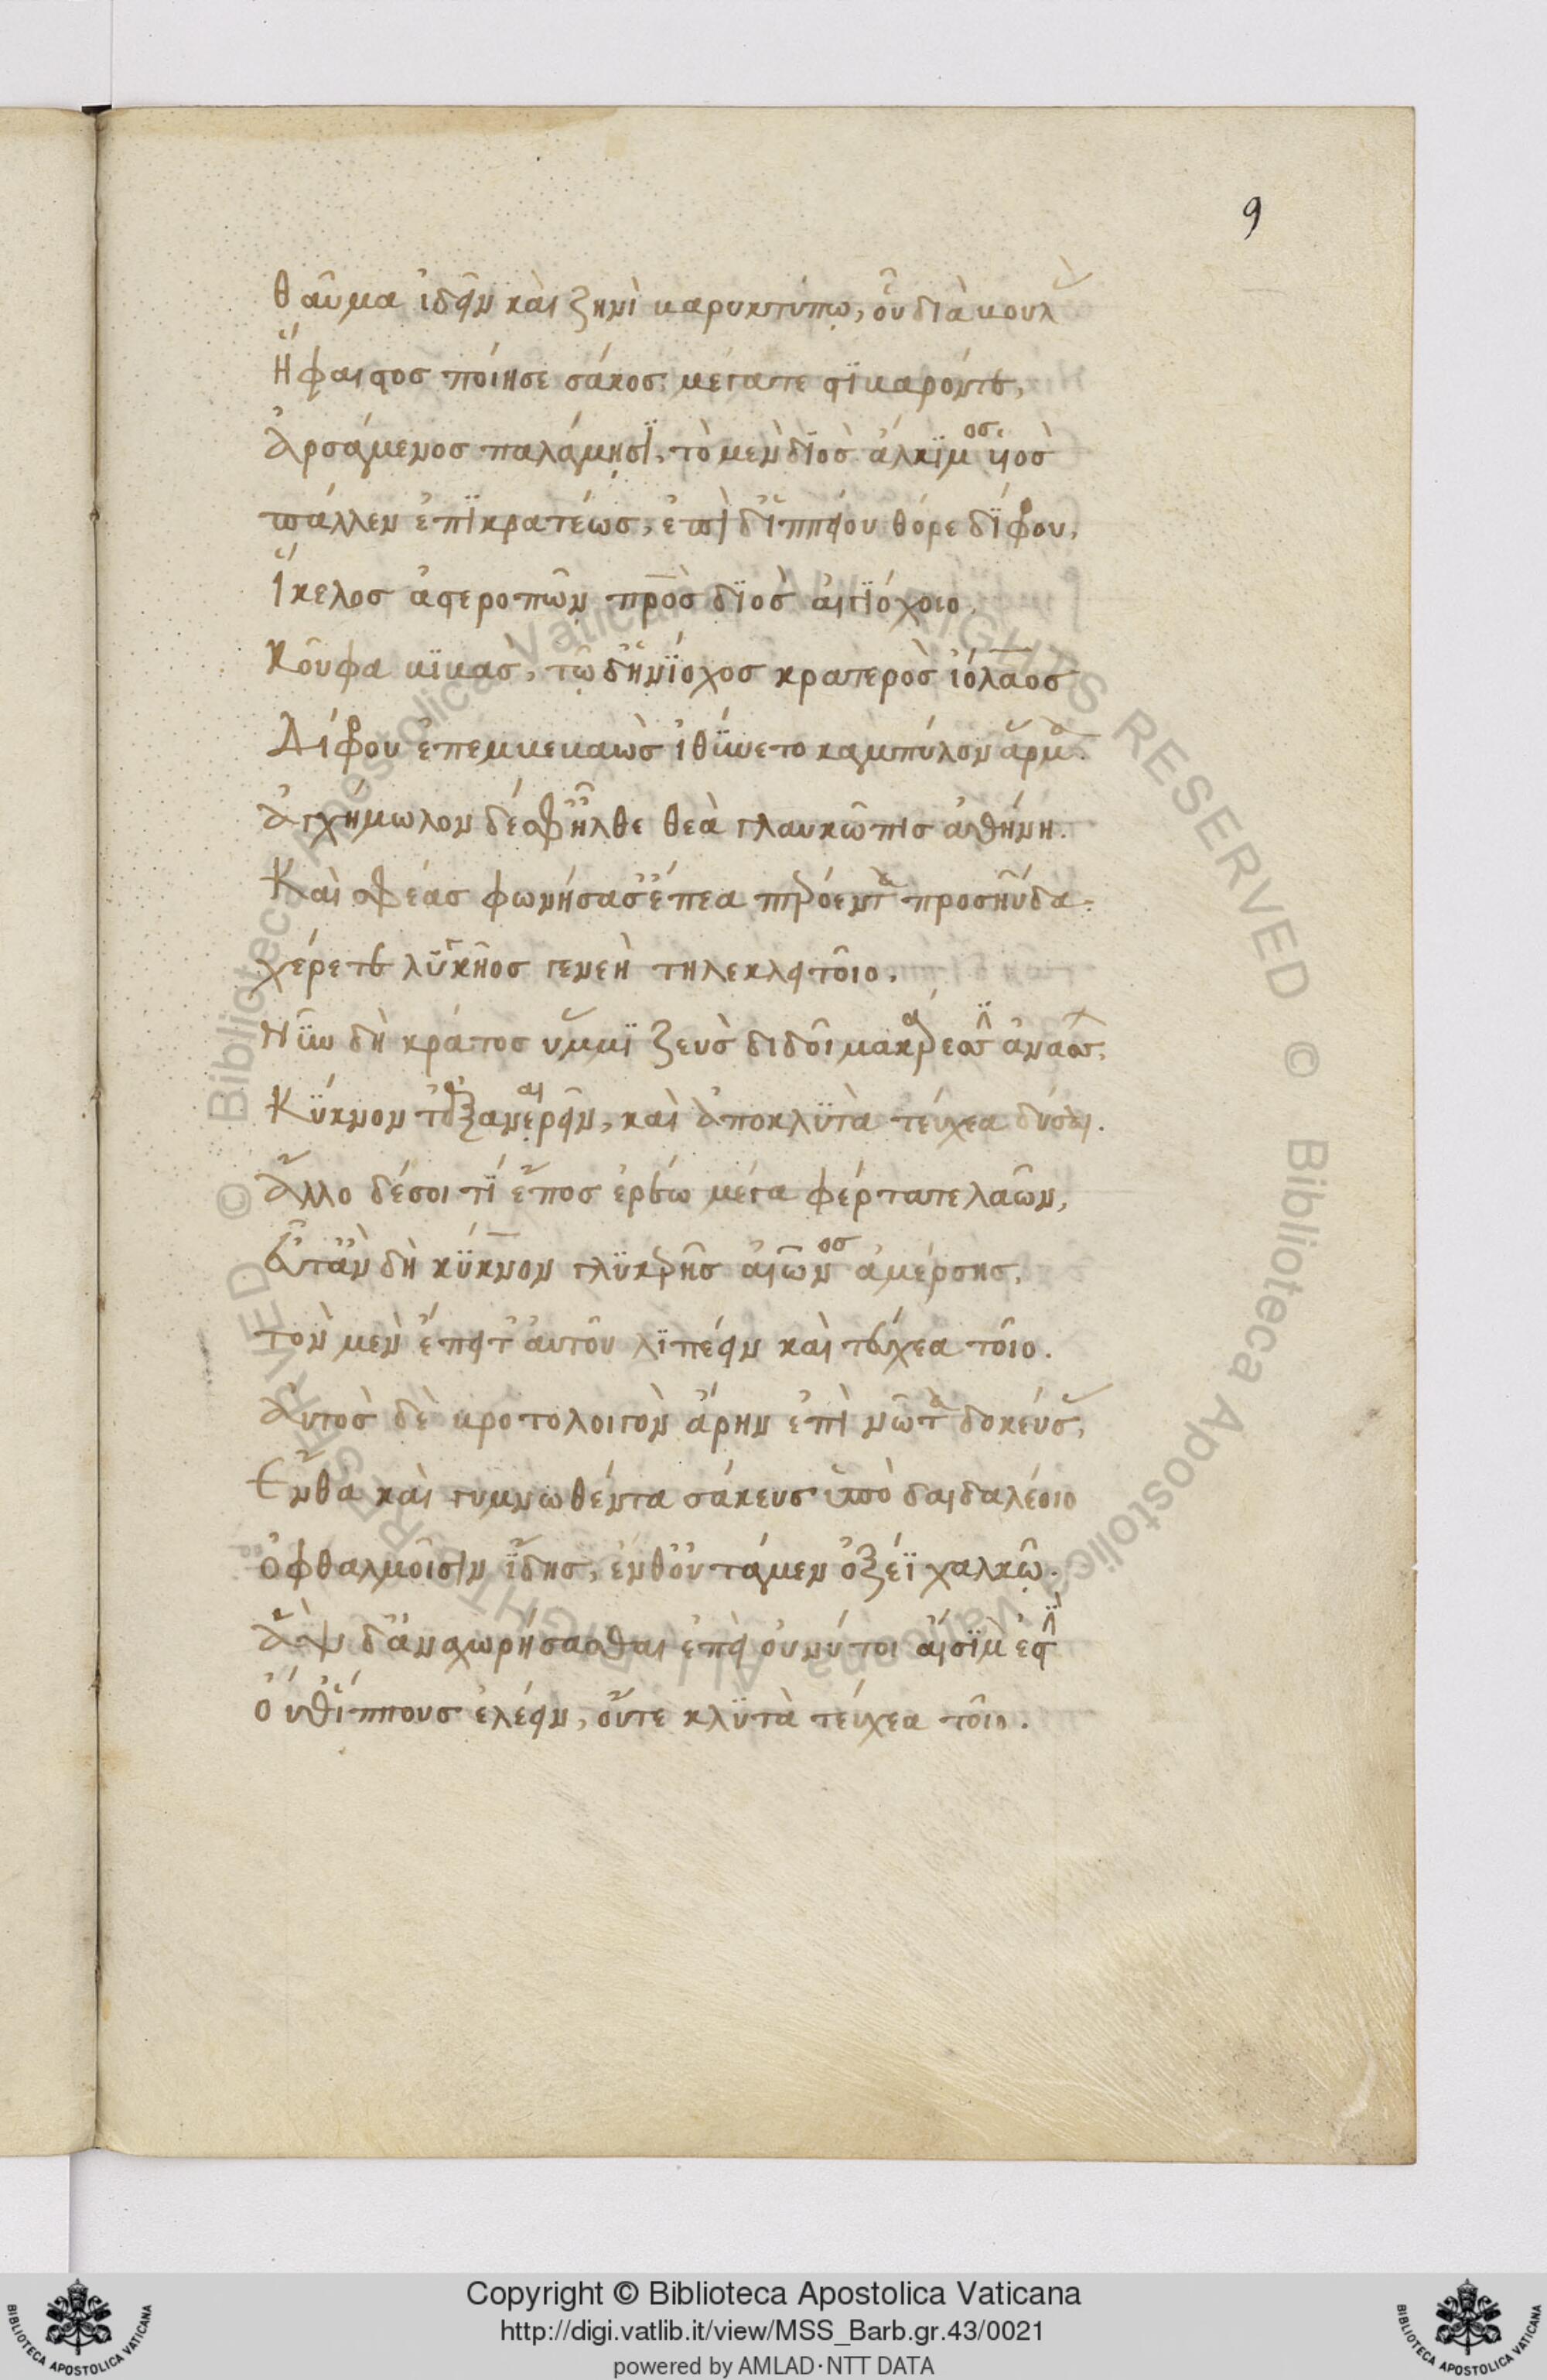 9
θαῦμα ἰδεῖν καὶ ζηνὶ βαρυκτύπῳ, οὗ διὰ βουλὰς
Ἥφαιστος ποίησε σάκος μέγα τε στιβαρόν τε,
Ἀρσάμενος παλάμῃσϊ, τὸ μὲν δϊὸς ἄλκϊμος ϋἱὸς
πάλλεν ἐπϊκρατέως, ἐπὶ δ' ἱππείου θόρε δίφρου,
Ἴκελος ἀστεροπῆ πρὸς δϊὸς αἰγϊόχοιο.
Κοῦφα βϊβὰς, τῷ δ' ἡνϊόχος κρατερὸς ἰόλαος
Δίφρου ἐπεμβεβαὼς ἰθύνετο καμπύλον ἅρμα.
Ἀγχήμολον δέ σφ' ἦλθε θεὰ γλαυκῶπις ἀθήνη.
Καὶ σφέας φωνήσασ' ἔπεα πτερόεντα προσηύδα.
χέρετε λϋγκῆος γενεὴ τηλεκλειτοῖο.
Νῦν δὴ κράτος ὔμμϊ ζεὺς διδοῖ μακάρεσσϊν ἀνάσσων,
Κύκνον τ' ἐξεναρεῖν, καὶ ἀπο κλϋτὰ τεύχεα δύσαι.
Ἄλλο δέ σοι τϊ ἔπος ἐρέω μέγα φέρτατε λαῶν,
Εὖτ' ἂν δὴ κύκνον γλϋκερῆς αἰῶνος ἀμέρσῃς,
τὸν μὲν ἔπειτ' αὐτοῦ λϊπέειν καὶ τεύχεα τοῖο.
Αὐτὸς δὲ βροτολοιγὸν ἄρην ἐπϊόντα δοκεύσας,
Ἔνθα καὶ γυμνωθέντα σάκευς ὑπὸ δαιδαλέοιο
ὀφθαλμοῖσιν ἴδῃς, ἔνθ' οὐτάμεν ὀξέϊ χαλκῷ.
Ἂψ δ' ἀναχωρήσασθαι ἐπεὶ οὐ νύ τοι αἴσϊμόν ἐστϊν
Οὔθ' ἵππους ἑλέειν, οὔτε κλϋτὰ τεύχεα τοῖο.
Copyright © Biblioteca Apostolica Vaticana
http://digi.vatlib.it/view/MSS_Barb.gr.43/0021
powered by AMLAD·NTT DATA